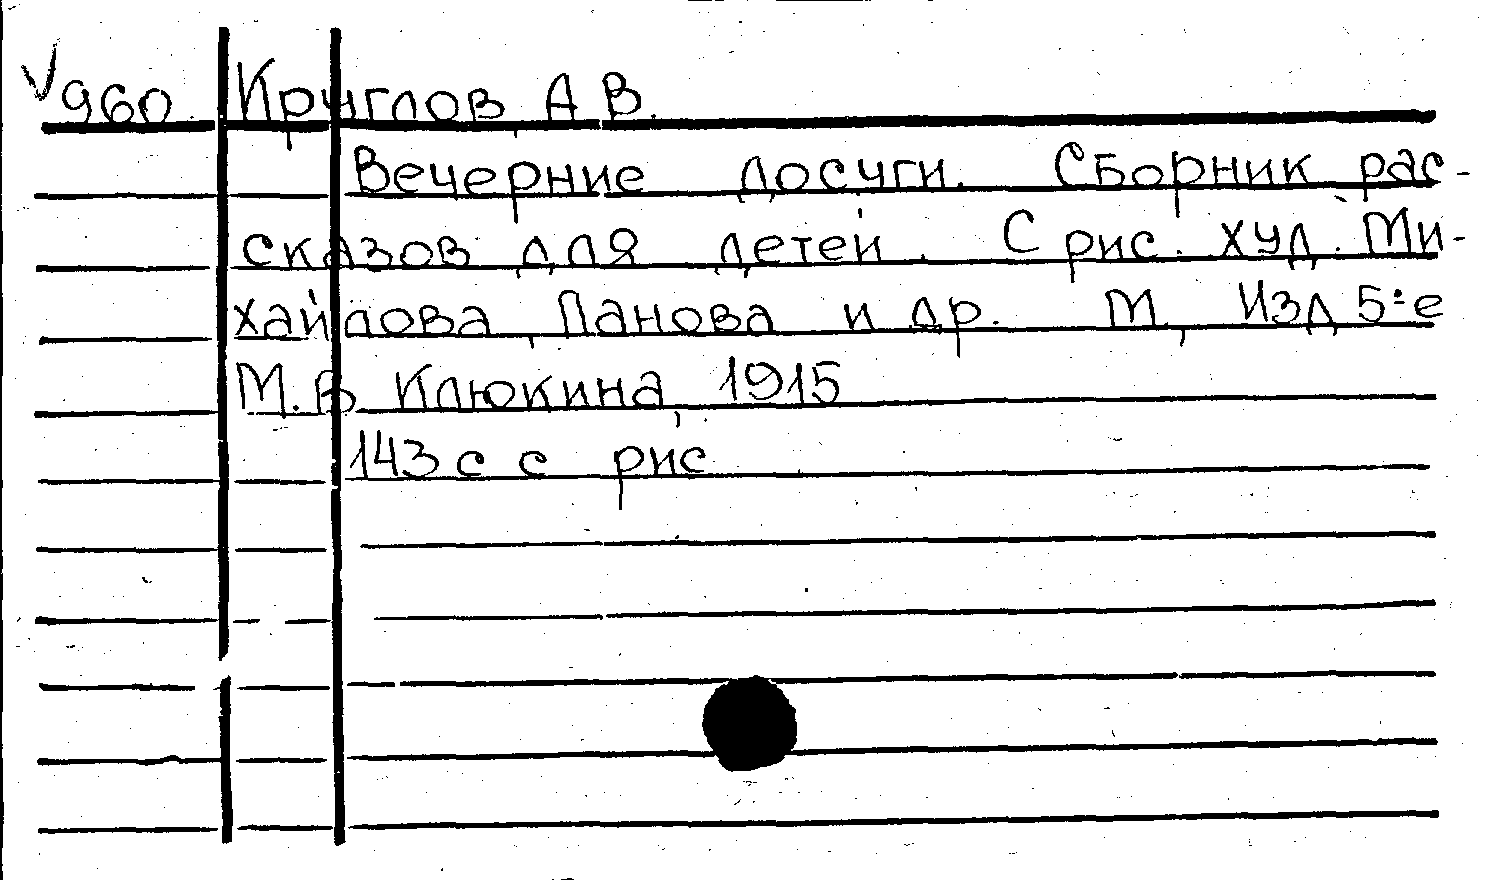 V960 Круглов, А.В.
Вечерние досуги. Сборник рас-
сказов для детей. С рис. худ. Ми-
хайлова, Панова и др. М., Изд 5-е
М.В. Клюкина, 1915
143 с с рис